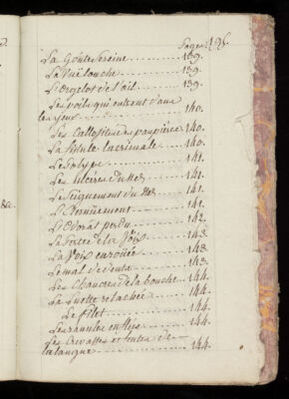 Pages. 196.
La Goute Sereine ........ 139.
La Vuë louche ........ 139.
L'Orgelet de l'œil ........ 139.
Les poils qui entrent dans
les yeux ........ 140.
Les Callosités des paupières 140.
La fistule lacrimale ........ 140.
Le Polype ........ 141.
Les ulcères du Nés ........ 141.
Le Seignement du Nés ........ 141.
L'Eternuement ........ 141.
L'Odorat perdu ........ 142.
La Perte de la Voix ........ 143.
La Voix enrouée ........ 143.
Le mal de dents ........ 143.
Les Chancres de la bouche ... 144.
La Luette relachée ........ 144.
Le filet ........ 144.
Les ranules enflées ........ 144.
Les Crevasses et fentes de
la langue ........ 144.